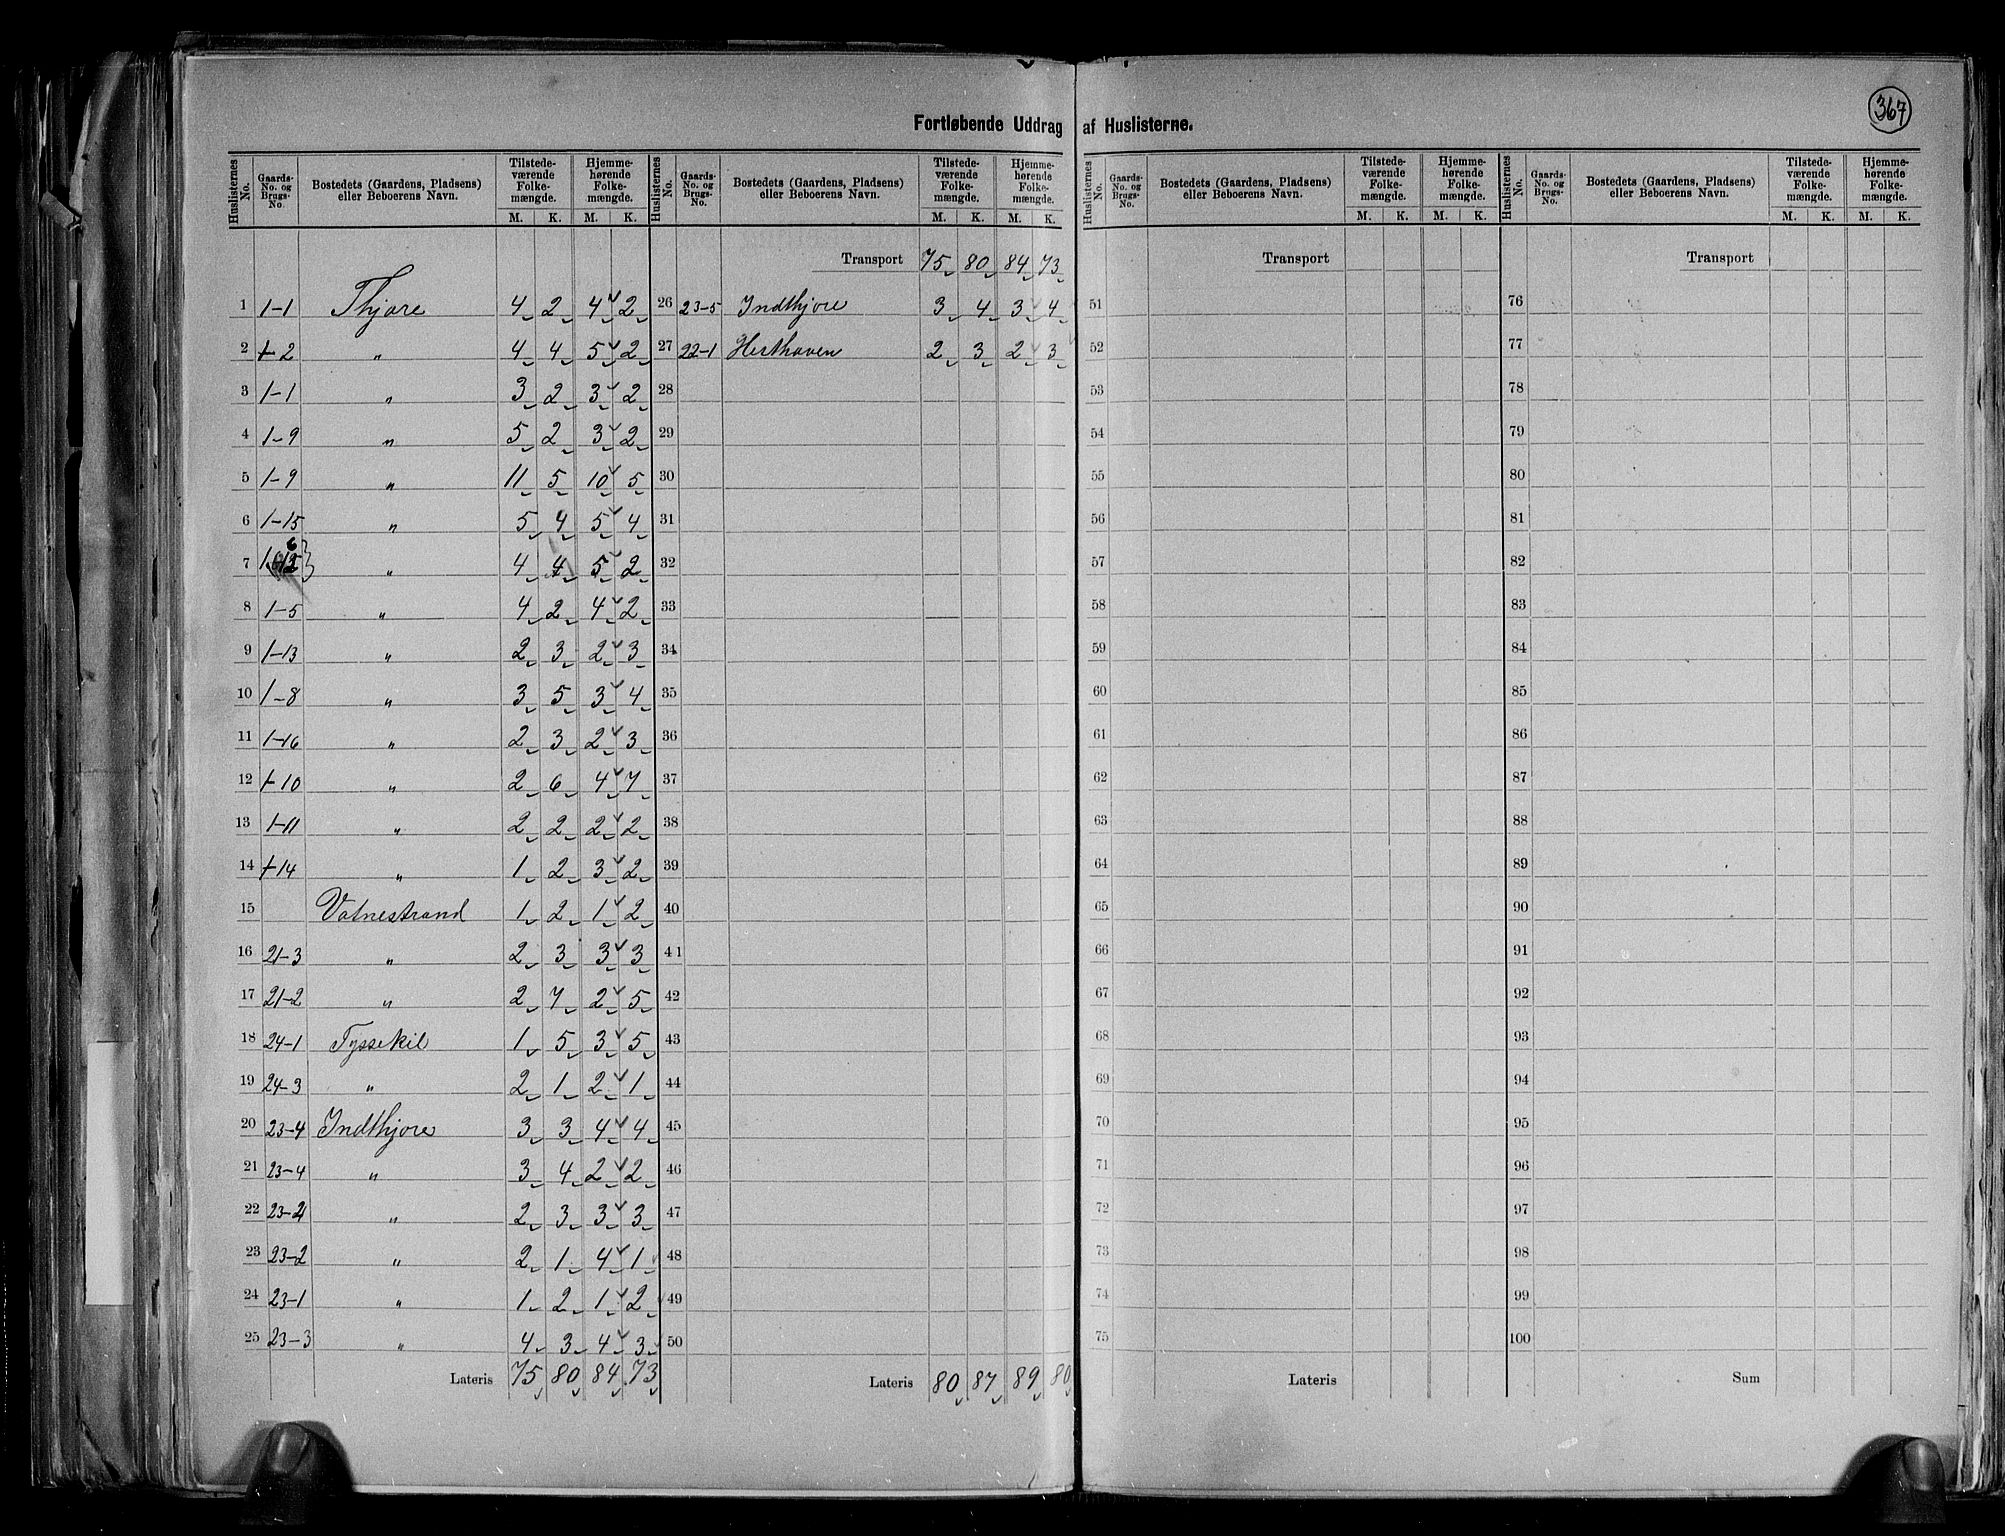 367
Fortløbende Uddrag af Huslisterne.
Huslisternes No. | Gaards-No. og Brugs-No. | Bostedets (Gaardens, Pladsens) eller Beboerens Navn. | Tilstedeværende Folkemængde. M. K. | Hjemmehørende Folkemængde. M. K.
1 1-1 Thjøre 4 2 4 2
2 1-2 " 4 4 5 2
3 1-1 " 3 2 3 2
4 1-9 " 5 2 3 2
5 1-9 " 11 5 10 5
6 1-15 " 5 4 5 4
7 " 4 4 5 2
8 1-5 " 4 2 4 2
9 1-13 " 2 3 2 3
10 1-8 " 3 5 3 4
11 1-16 " 2 3 2 3
12 1-10 " 2 6 4 7
13 1-11 " 2 2 2 2
14 1-14 " 1 2 3 2
15 Vatnestrand 1 2 1 2
16 21-3 " 2 3 3 3
17 21-2 " 2 7 2 5
18 24-1 Tyssekil 1 5 3 5
19 24-3 " 2 1 2 1
20 23-4 Indthjøre 3 3 4 4
21 23-4 " 3 4 2 2
22 " 2 3 3 3
23 23-2 " 2 1 4 1
24 23-1 " 1 2 1 2
25 23-3 " 4 3 4 3
Lateris 75 80 84 73
Huslisternes No. | Gaards-No. og Brugs-No. | Bostedets (Gaardens, Pladsens) eller Beboerens Navn. | Tilstedeværende Folkemængde. M. K. | Hjemmehørende Folkemængde. M. K.
Transport 75 80 84 73
26 23-5 Indthjøre 3 4 3 4
27 22-1 Hesthaven 2 3 2 3
28
29
30
31
32
33
34
35
36
37
38
39
40
41
42
43
44
45
46
47
48
49
50
Lateris 80 87 89 80
Huslisternes No. | Gaards-No. og Brugs-No. | Bostedets (Gaardens, Pladsens) eller Beboerens Navn. | Tilstedeværende Folkemængde. M. K. | Hjemmehørende Folkemængde. M. K.
Transport
51
52
53
54
55
56
57
58
59
60
61
62
63
64
65
66
67
68
69
70
71
72
73
74
75
Lateris
Huslisternes No. | Gaards-No. og Brugs-No. | Bostedets (Gaardens, Pladsens) eller Beboerens Navn. | Tilstedeværende Folkemængde. M. K. | Hjemmehørende Folkemængde. M. K.
Transport
76
77
78
79
80
81
82
83
84
85
86
87
88
89
90
91
92
93
94
95
96
97
98
99
100
Sum